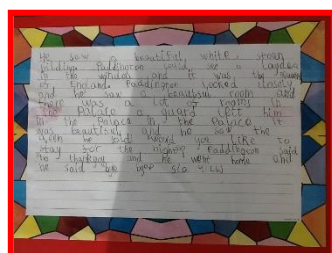 He saw a beautiful white, spoon
building. Paddington could see a
in the window and it was the Queen
of England. Paddington looked closely
and he saw a beautiful room and
there was a lot of rooms in
the Palace. a guard let him
in the Palace. In the Palace it
was beautiful and he saw the
Queen he said would you like to
stay for the night? Paddington said
no thankyou and he went home and
he said